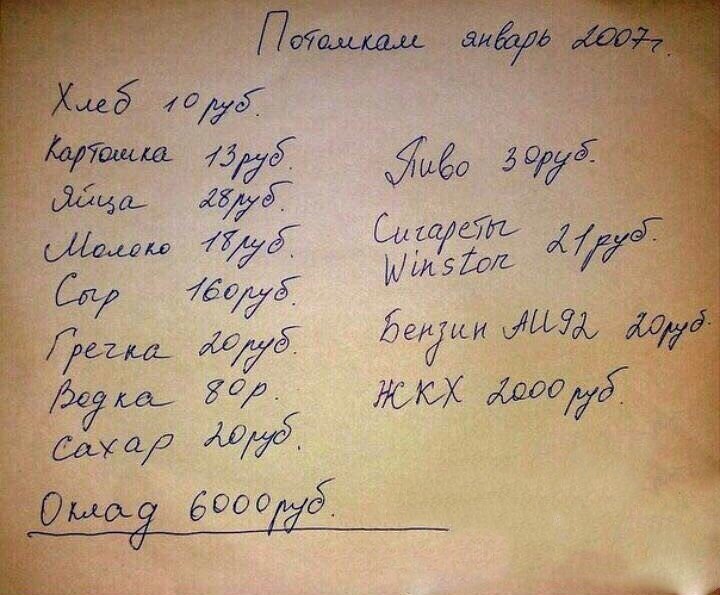 Потомкам январь 2007г.
Хлеб 10руб.
Картошка 13руб.
Яйца 28руб.
Молоко 18руб.
Сыр 160руб.
Гречка 20руб.
Водка 80р.
Сахар 20руб.
Пиво 30руб.
Сигареты
Winston 21руб.
Бензин АИ92 20руб.
ЖКХ 2000руб.
Оклад 6000руб.